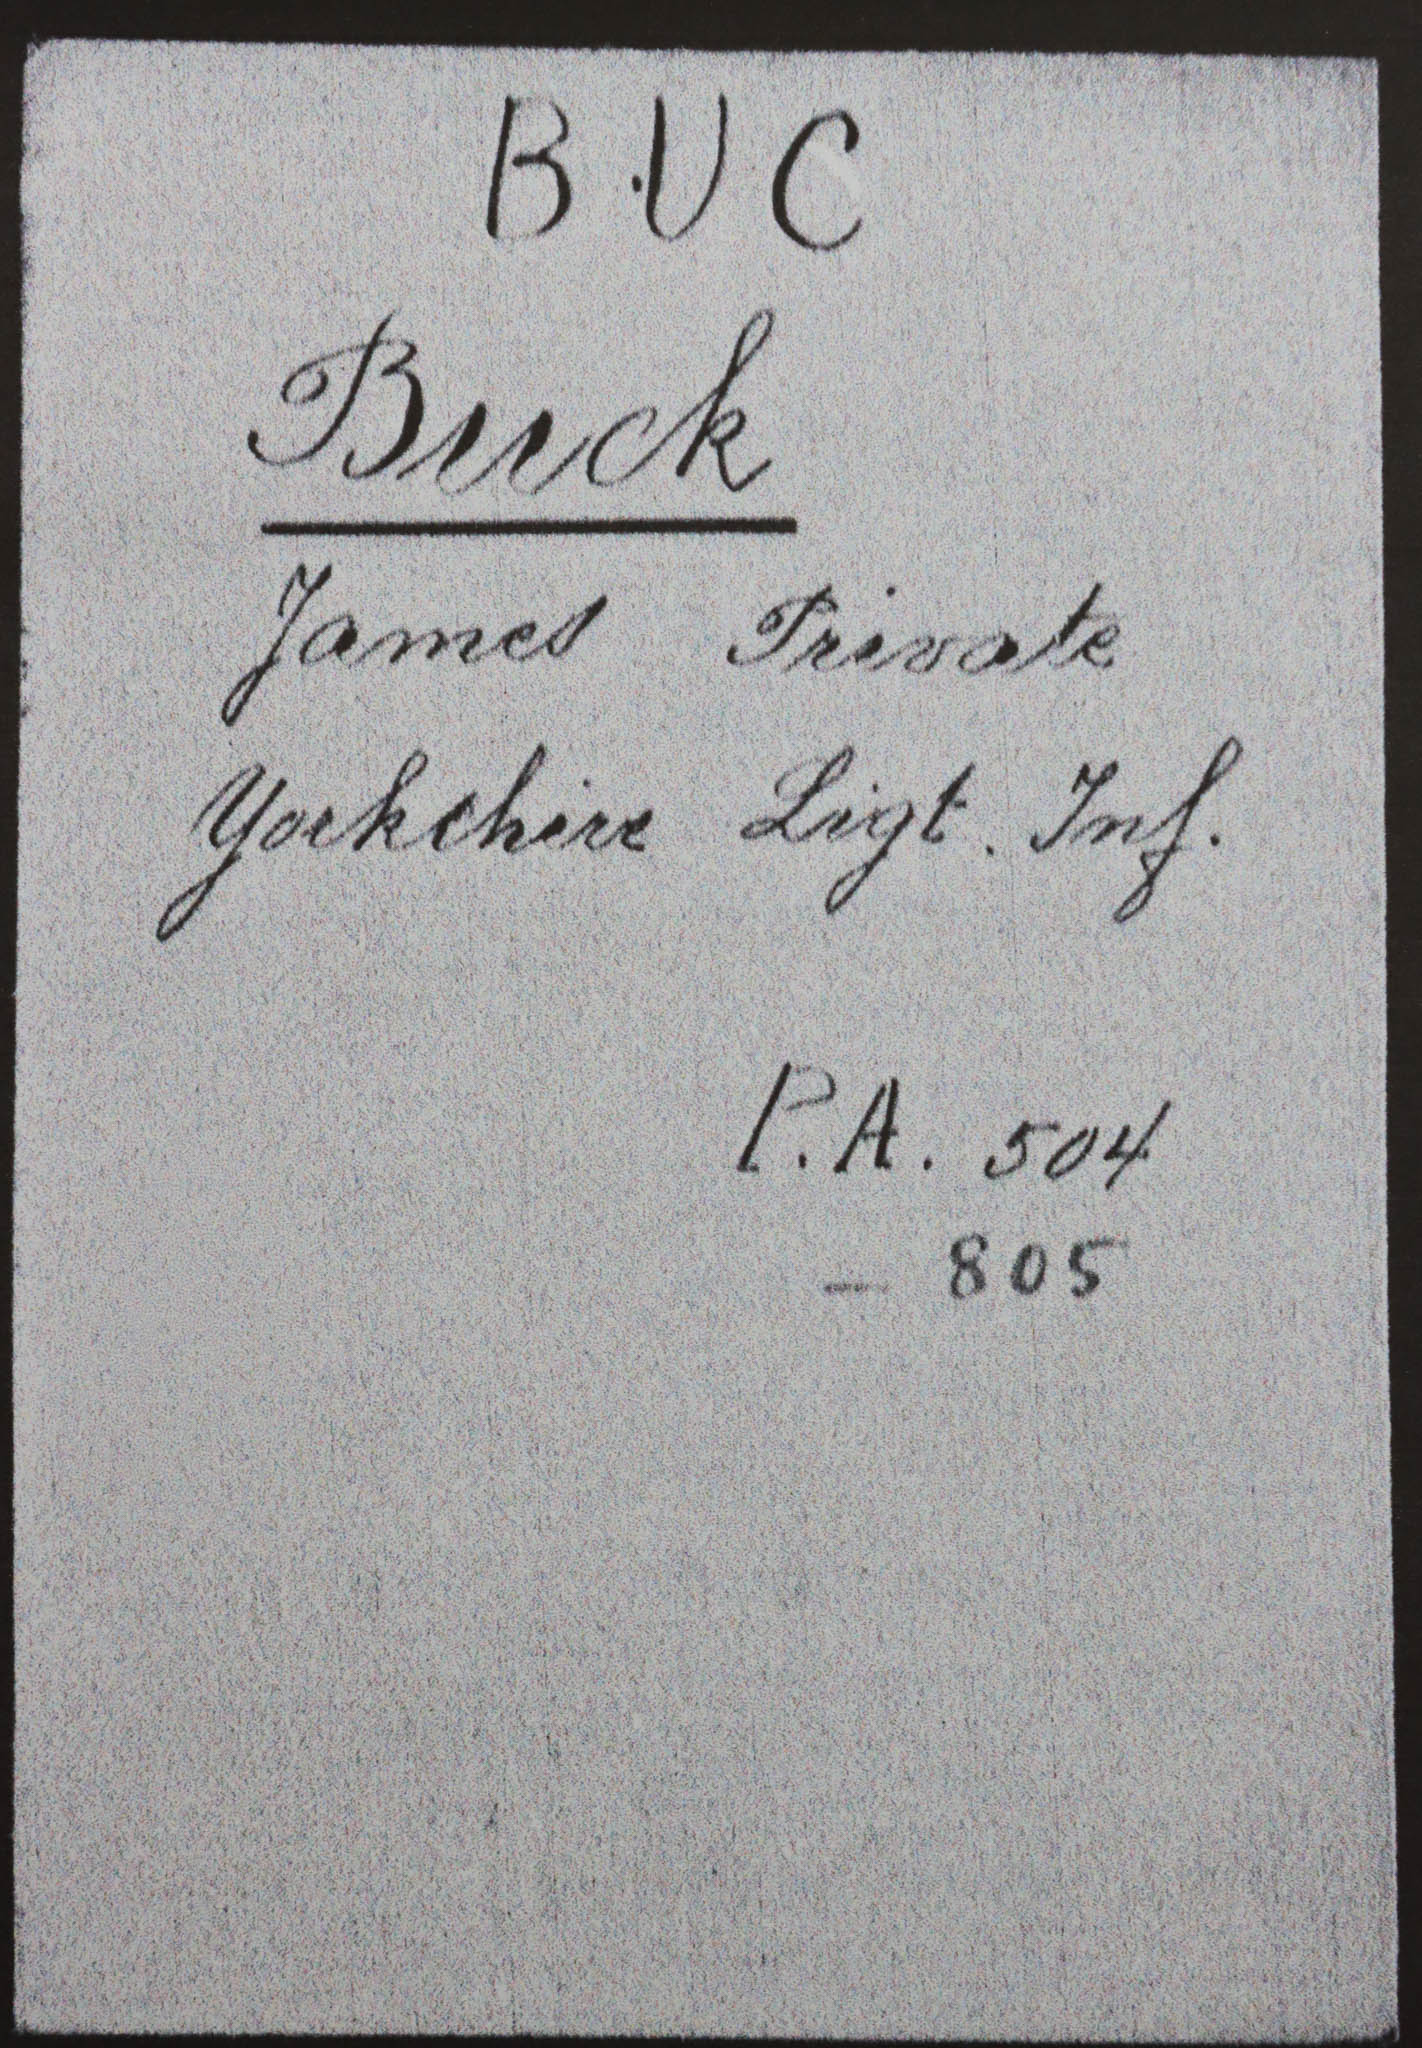 B.U C
Buck
James Private
Yorkshire Ligt. Inf.
P.A. 504
— 805